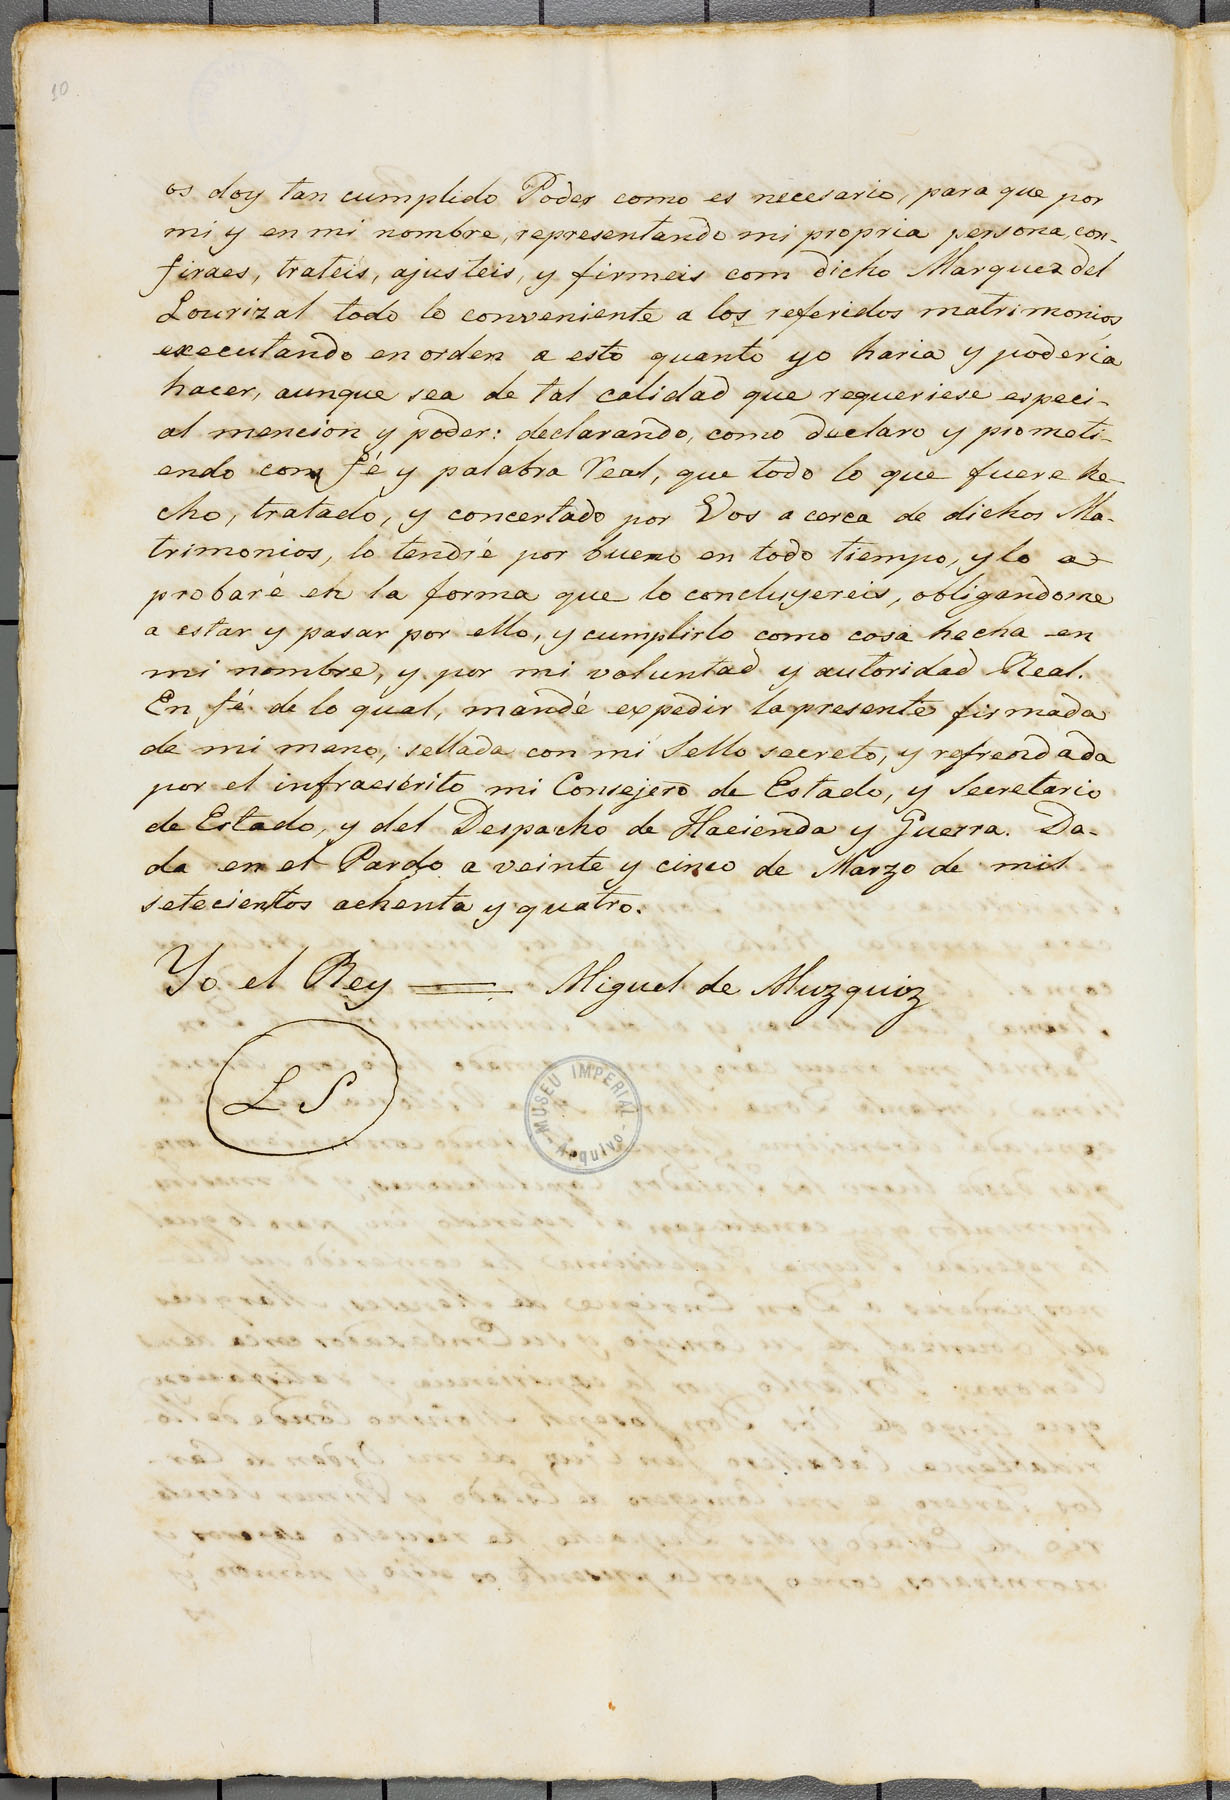 10
os doy tan cumplido Poder como es necesario, para que por
mi y en mi nombre, representando mi propria persona, con-
firaes, trateis, ajusteis, y firmeis com dicho Marquez del
Lourizal todo lo conveniente a los referidos matrimonios,
executando en orden a esto quanto yo haria y poderia
hacer, aunque sea de tal calidad que requeriese especi-
al mencion y poder: declarando, como declaro y prometi-
endo com fé y palabra Real, que todo lo que fuere he-
cho, tratado, y concertado por Vos a cerca de dichos Ma-
trimonios, lo tendré por bueno en todo tiempo, y lo a-
probaré en la forma que lo concluyereis, obligandome
a estar y pasar por ello, y cumplirlo como cosa hecha en
mi nombre, y por mi voluntad y autoridad Real.
En fé de lo qual, mandé expedir la presente firmada
de mi mano, sellada con mi Sello secreto, y refrendada
por el infraescrito mi Consejero de Estado, y Secretario
de Estado, y del Despacho de Hacienda y Guerra. Da-
da en el Pardo a veinte y cinco de Marzo de mil
setecientos achenta y quatro.
Yo el Rey == Miguel de Muzquiz
L S
MUSEU IMPERIAL
Arquivo